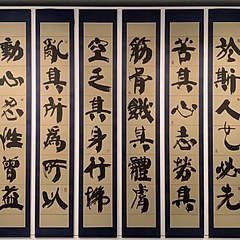 於斯人也必先
苦其心志勞其
筋骨餓其體膚
空乏其身行拂
亂其所為所以
動心忍性曾益